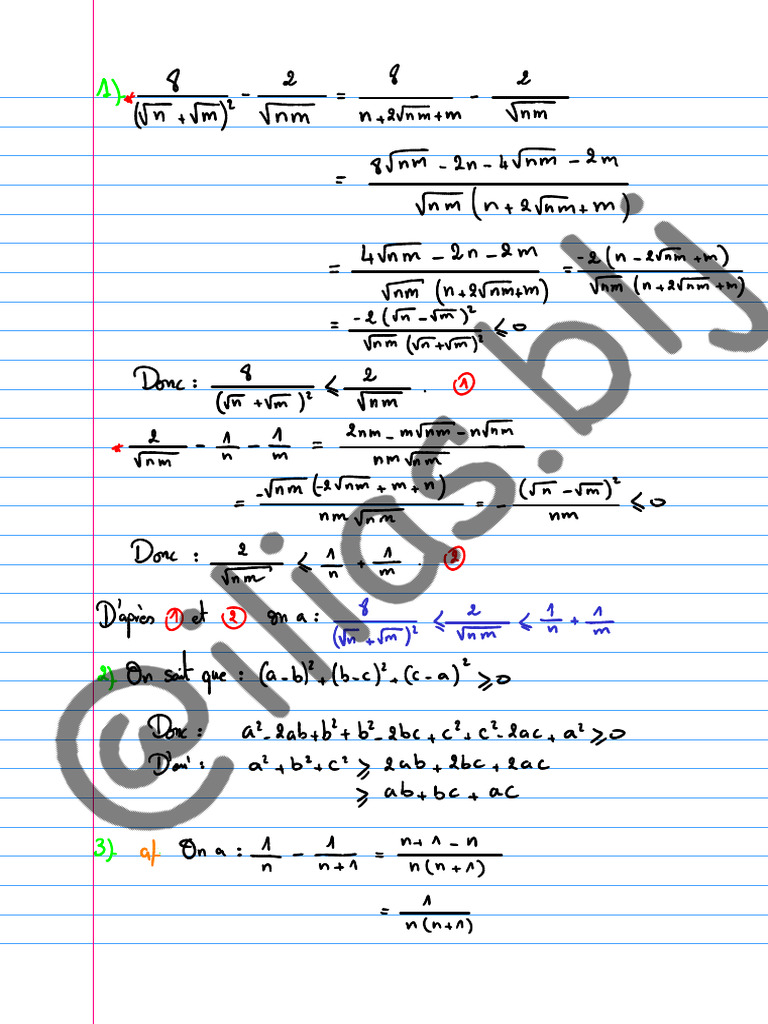 1) * 8/(√n + √m)² - 2/√nm = 8/(n+2√nm+m) - 2/√nm
= (8√nm - 2n - 4√nm - 2m)/(√nm (n + 2√nm + m))
= (4√nm - 2n - 2m)/(√nm (n+2√nm+m)) = -2(n - 2√nm + m)/(√nm (n+2√nm+m))
= -2(√n - √m)²/(√nm (√n+√m)²) ≤ 0
Donc : 8/(√n + √m)² ≤ 2/√nm . ①
* 2/√nm - 1/n - 1/m = (2nm - m√nm - n√nm)/(nm√nm)
= -√nm(-2√nm + m + n)/(nm√nm) = - (√n - √m)²/nm ≤ 0
Donc : 2/√nm ≤ 1/n + 1/m . ②
D'après ① et ② on a : 8/(√n + √m)² ≤ 2/√nm ≤ 1/n + 1/m
2) On sait que : (a-b)² + (b-c)² + (c-a)² ≥ 0
Donc : a² - 2ab + b² + b² - 2bc + c² + c² - 2ac + a² ≥ 0
D'où : a² + b² + c² ≥ 2ab + 2bc + 2ac
≥ ab + bc + ac
3) a/ On a : 1/n - 1/(n+1) = (n+1-n)/(n(n+1))
= 1/(n(n+1))
@ilias.blj